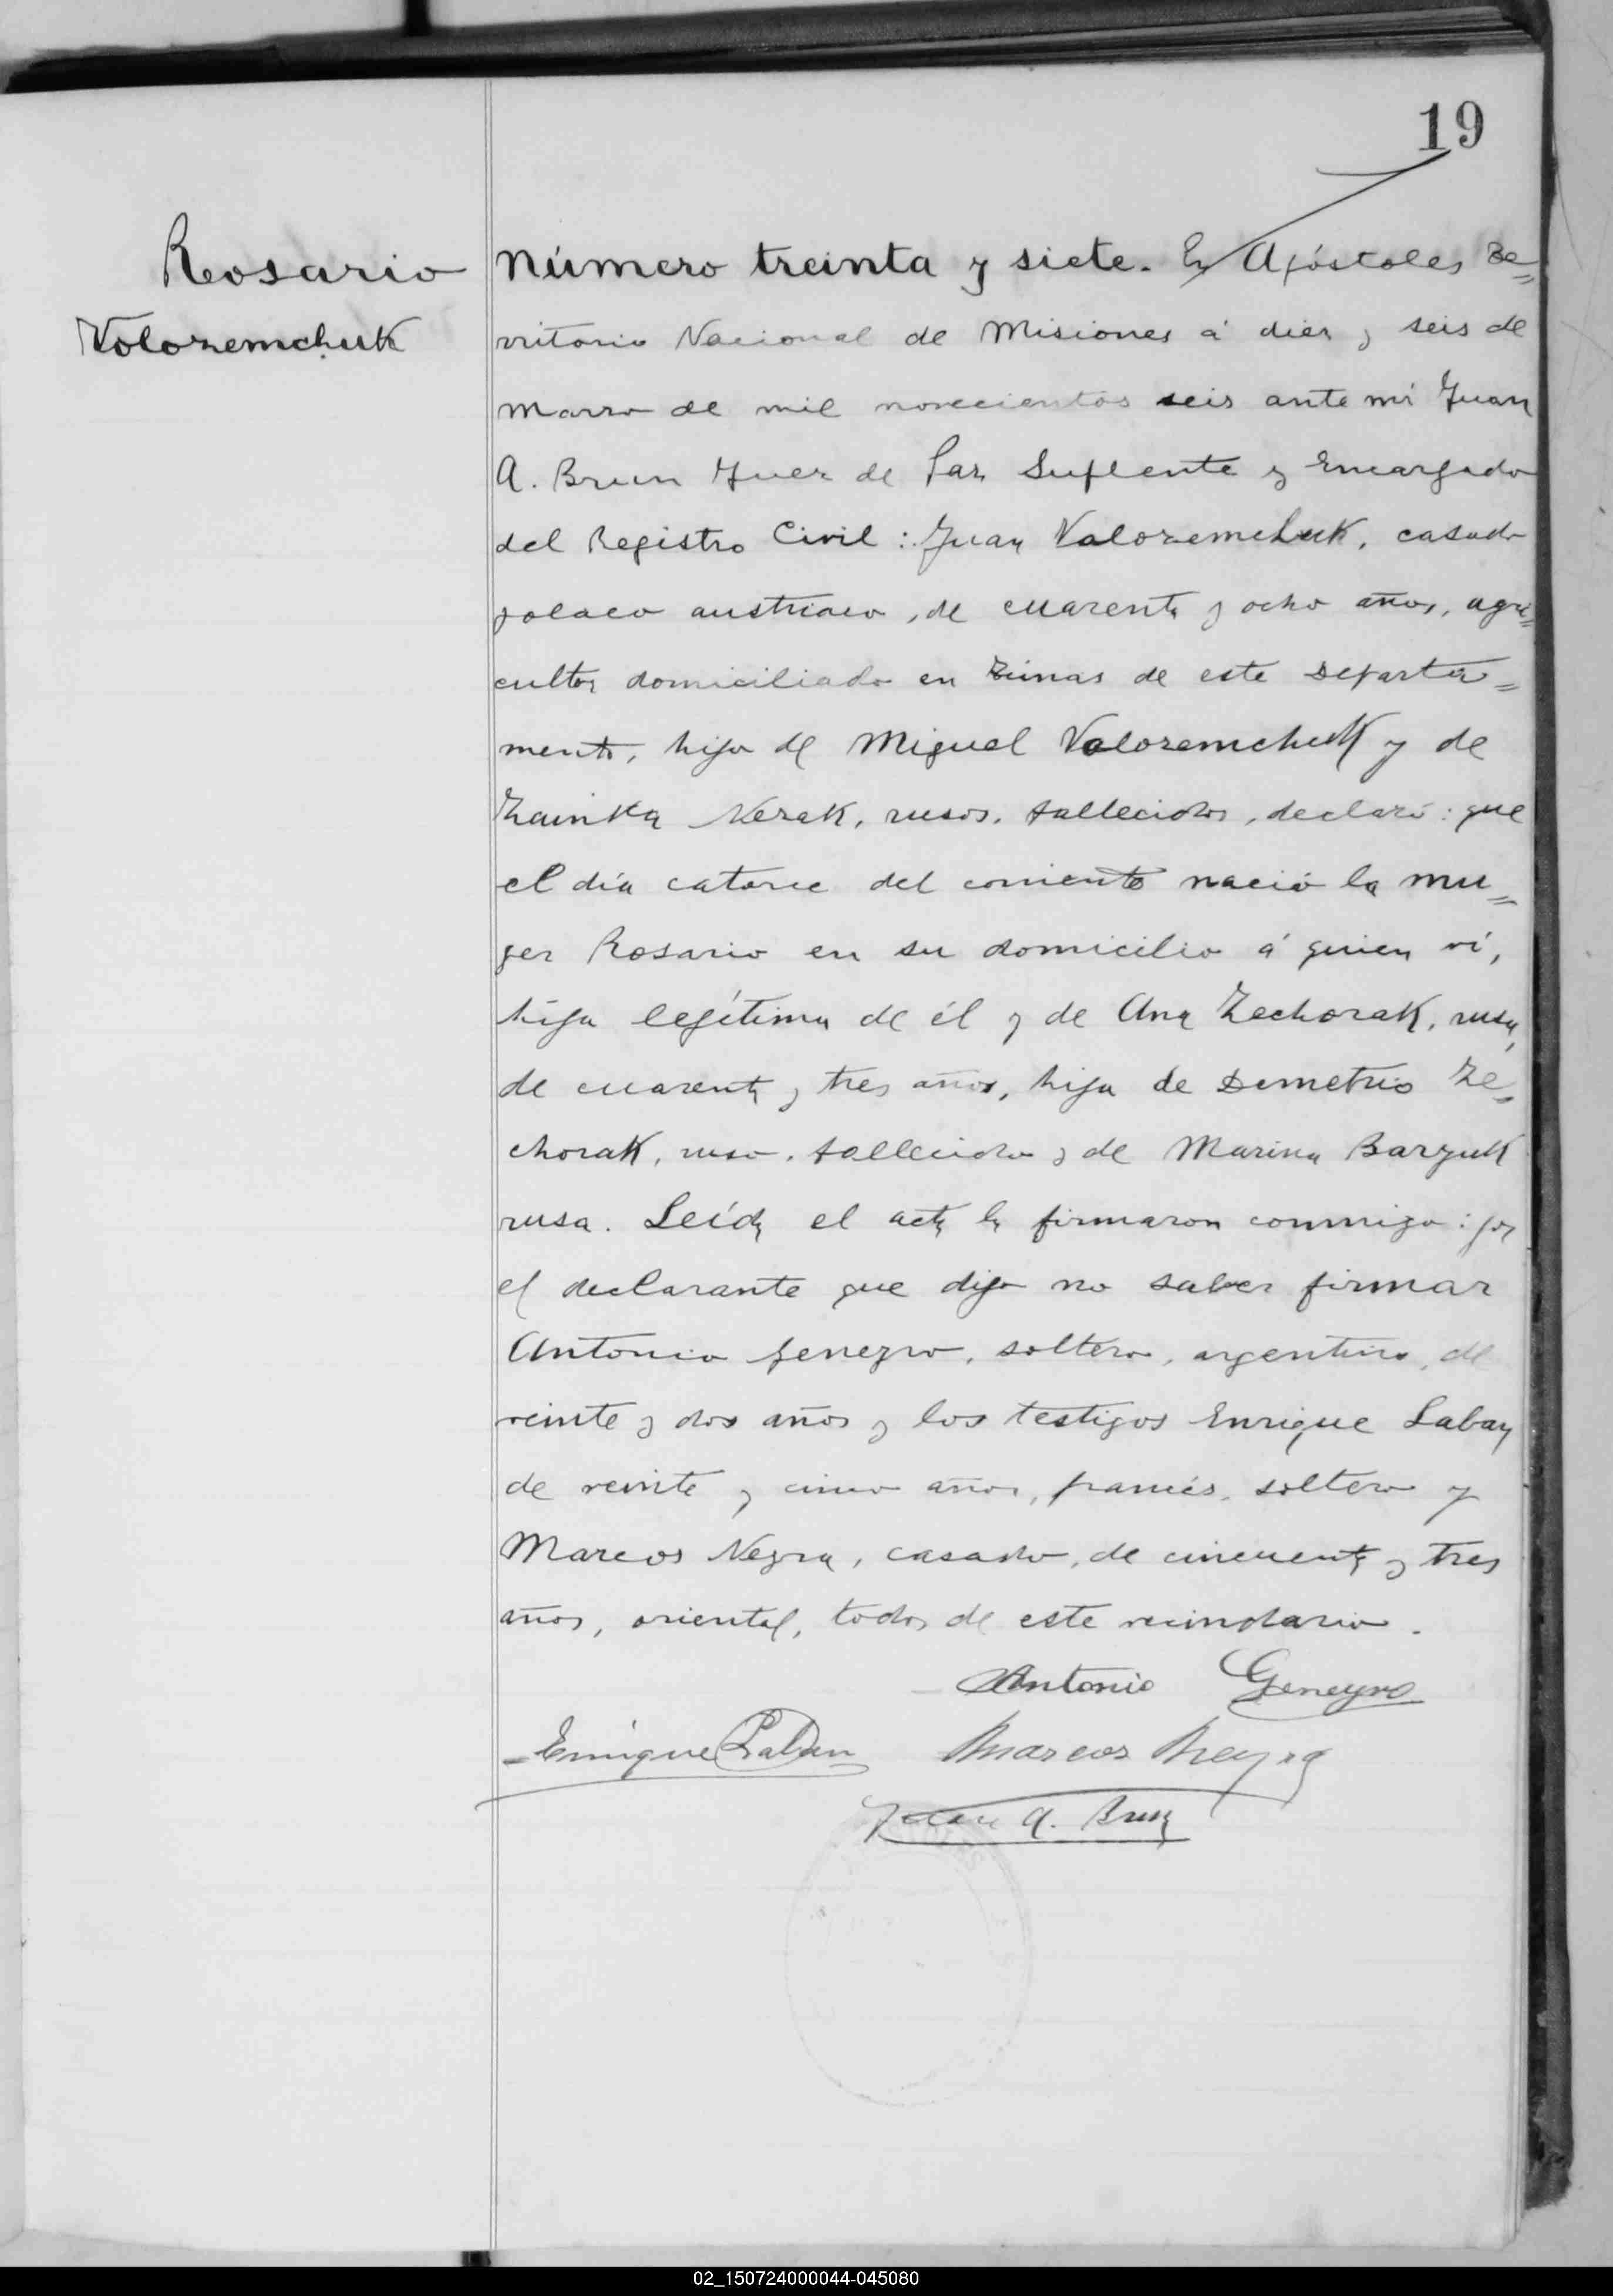 19
Rosario
Volozemchuk
Número treinta y siete. En Apóstoles Te=
rritorio Nacional de Misiones á diez y seis de
Marzo de mil novecientos seis ante mí Juan
A. Brun Juez de Paz Suplente y Encargado
del Registro Civil: Juan Valozemchuk, casado
polaco austriaco, de cuarenta y ocho años, agri=
cultor domiciliado en de este Departa=
mento, hijo de Miguel Valozemchuk y de
Nezak, rusos, fallecidos, declaró: que
el día catorce del corriente nació la mu=
ger Rosario en su domicilio á quien ví,
hija legítima de él y de Ana Zechorak, rusa,
de cuarenta y tres años, hija de Demetrio Ze=
chorak, ruso, fallecido y de Marina Barzuk
rusa. Leída el acta la firmaron conmigo: por
el declarante que dijo no saber firmar
Antonio Geneyro, soltero, argentino, de
veinte y dos años y los testigos Enrique Laban
de veinte y cinco años, francés, soltero y
Marcos Neyra, casado, de cincuenta y tres
años, oriental, todos de este vecindario.
Antonio Geneyro
Enrique Laban Marcos Neyra
Juan A. Brun
02_150724000044-045080